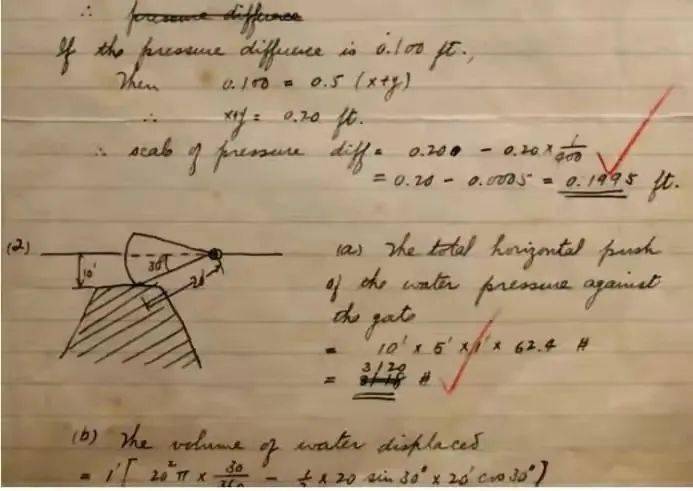 ∴ pressure difference
If the pressure difference is 0.100 ft.,
Then 0.100 = 0.5 (x+y)
∴ x+y = 0.20 ft.
∴ scale of pressure diff = 0.200 - 0.20 × 1/400
= 0.20 - 0.0005 = 0.1995 ft.
(2) 10' 30° 20'
(a) The total horizontal push
of the water pressure against
the gate
= 10' × 5' × 1' × 62.4 #
= 3120 #
(b) The volume of water displaced
= 1' [ 20² π × 30/360 - 1/2 × 20 sin 30° × 20' cos 30° ]